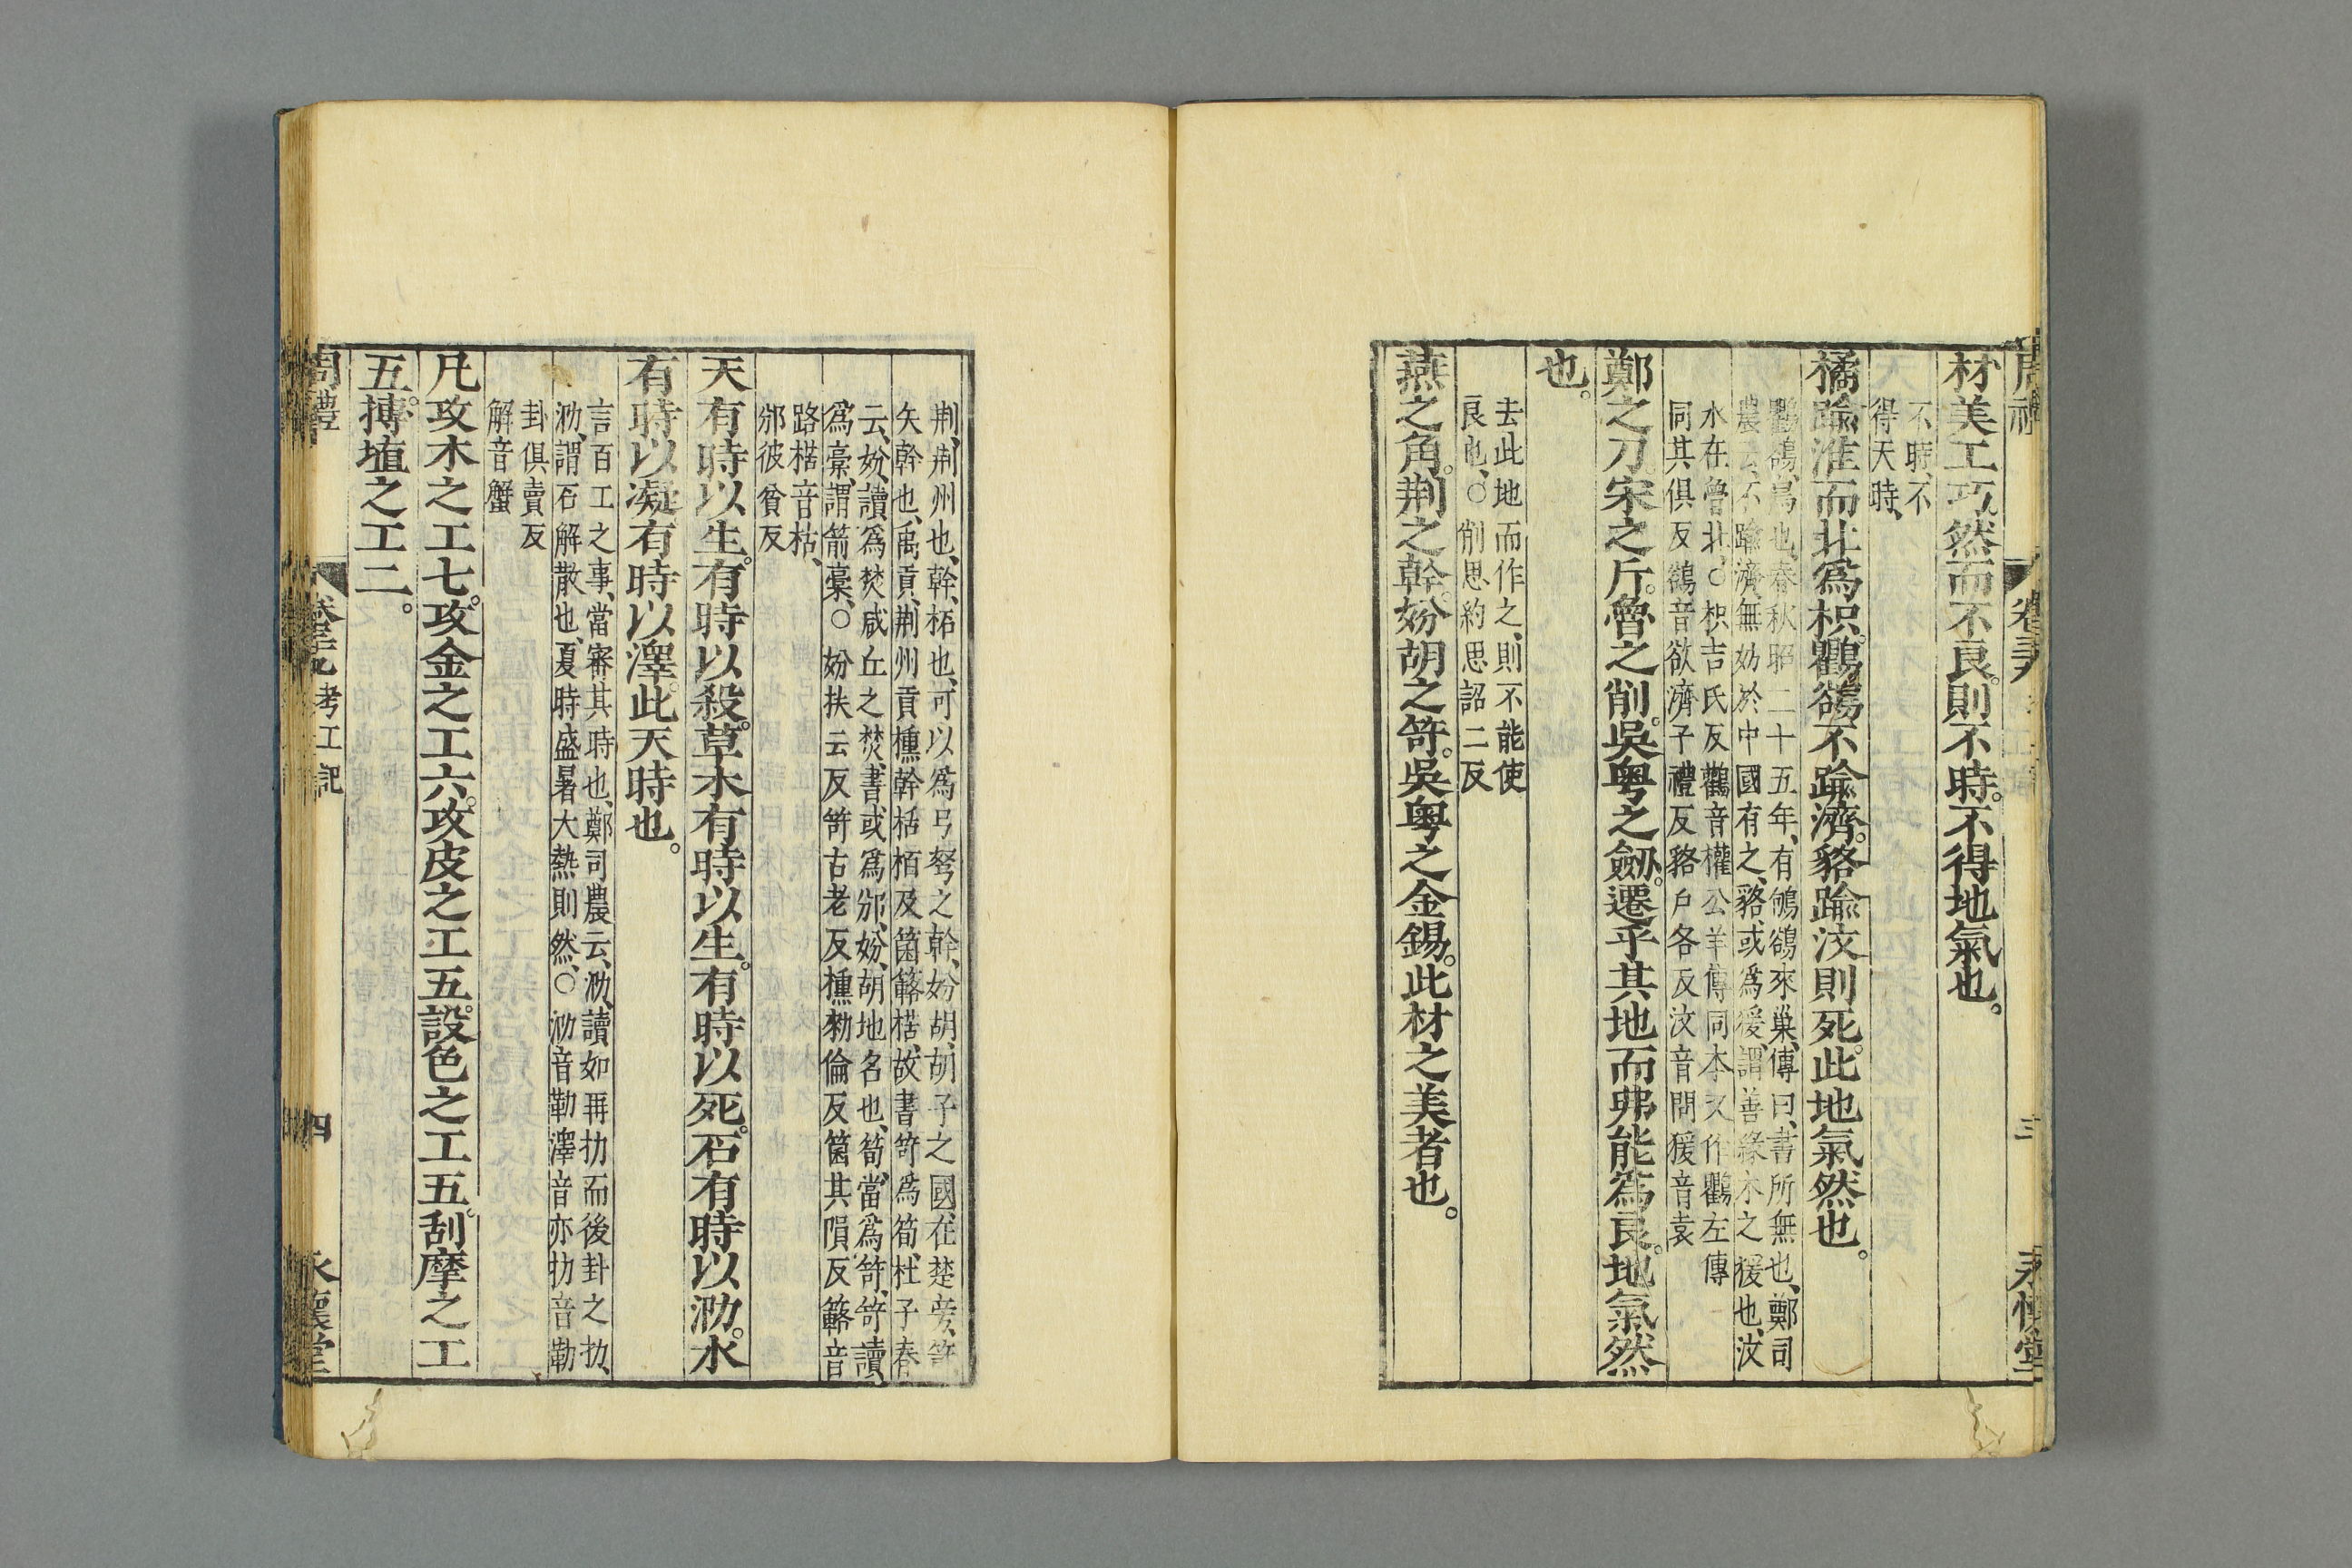 材美工巧。然而不良。則不時。不得地氣也。
不時、不
得天時、
橘踰淮而北爲枳。鸜鵒不踰濟。貉踰汶則死。此地氣然也。
鸜鵒、鳥也、春秋昭二十五年、有鸲鵒來巢、傳曰、書所無也、鄭司
農云、不踰濟、無妨於中國有之、貉、或爲猨、謂善緣木之猨也、汶
水在魯北、○枳吉氏反鸛音權公羊傳同本又作鸜左傳
同其俱反鵒音欲濟子禮反貉戶各反汶音問猨音袁
鄭之刀。宋之斤。魯之削。吳粤之劒。遷乎其地而弗能爲良。地氣然
也。
去此地而作之、則不能使
良也、○削思約思詔二反
燕之角。荆之幹。妢胡之笴。吳粤之金錫。此材之美者也。
荆、荆州也、幹、柘也、可以爲弓弩之幹、妢胡、胡子之國、在楚旁、笴、
矢幹也、禹貢、荆州貢櫄幹栝栢及箘簵楛、故書笴爲筍、杜子春
云、妢、讀爲焚咸丘之焚、書或爲邠、妢、胡地名也、筍、當爲笴、笴讀、
爲槀、謂箭槀、○妢扶云反笴古老反櫄勑倫反箘其隕反簵音
路楛音枯、
邠彼貧反
天有時以生。有時以殺。草木有時以生。有時以死。石有時以泐。水
有時以凝。有時以澤。此天時也。
言百工之事、當審其時也、鄭司農云、泐、讀如再扐而後卦之扐、
泐、謂石解散也、夏時盛暑大熱則然、○泐音勒澤音亦扐音勒
卦俱賣反
解音蟹
凡攻木之工七。攻金之工六。攻皮之工五。設色之工五。刮摩之工
五。搏埴之工二。
周禮
考工記
四
永懷堂